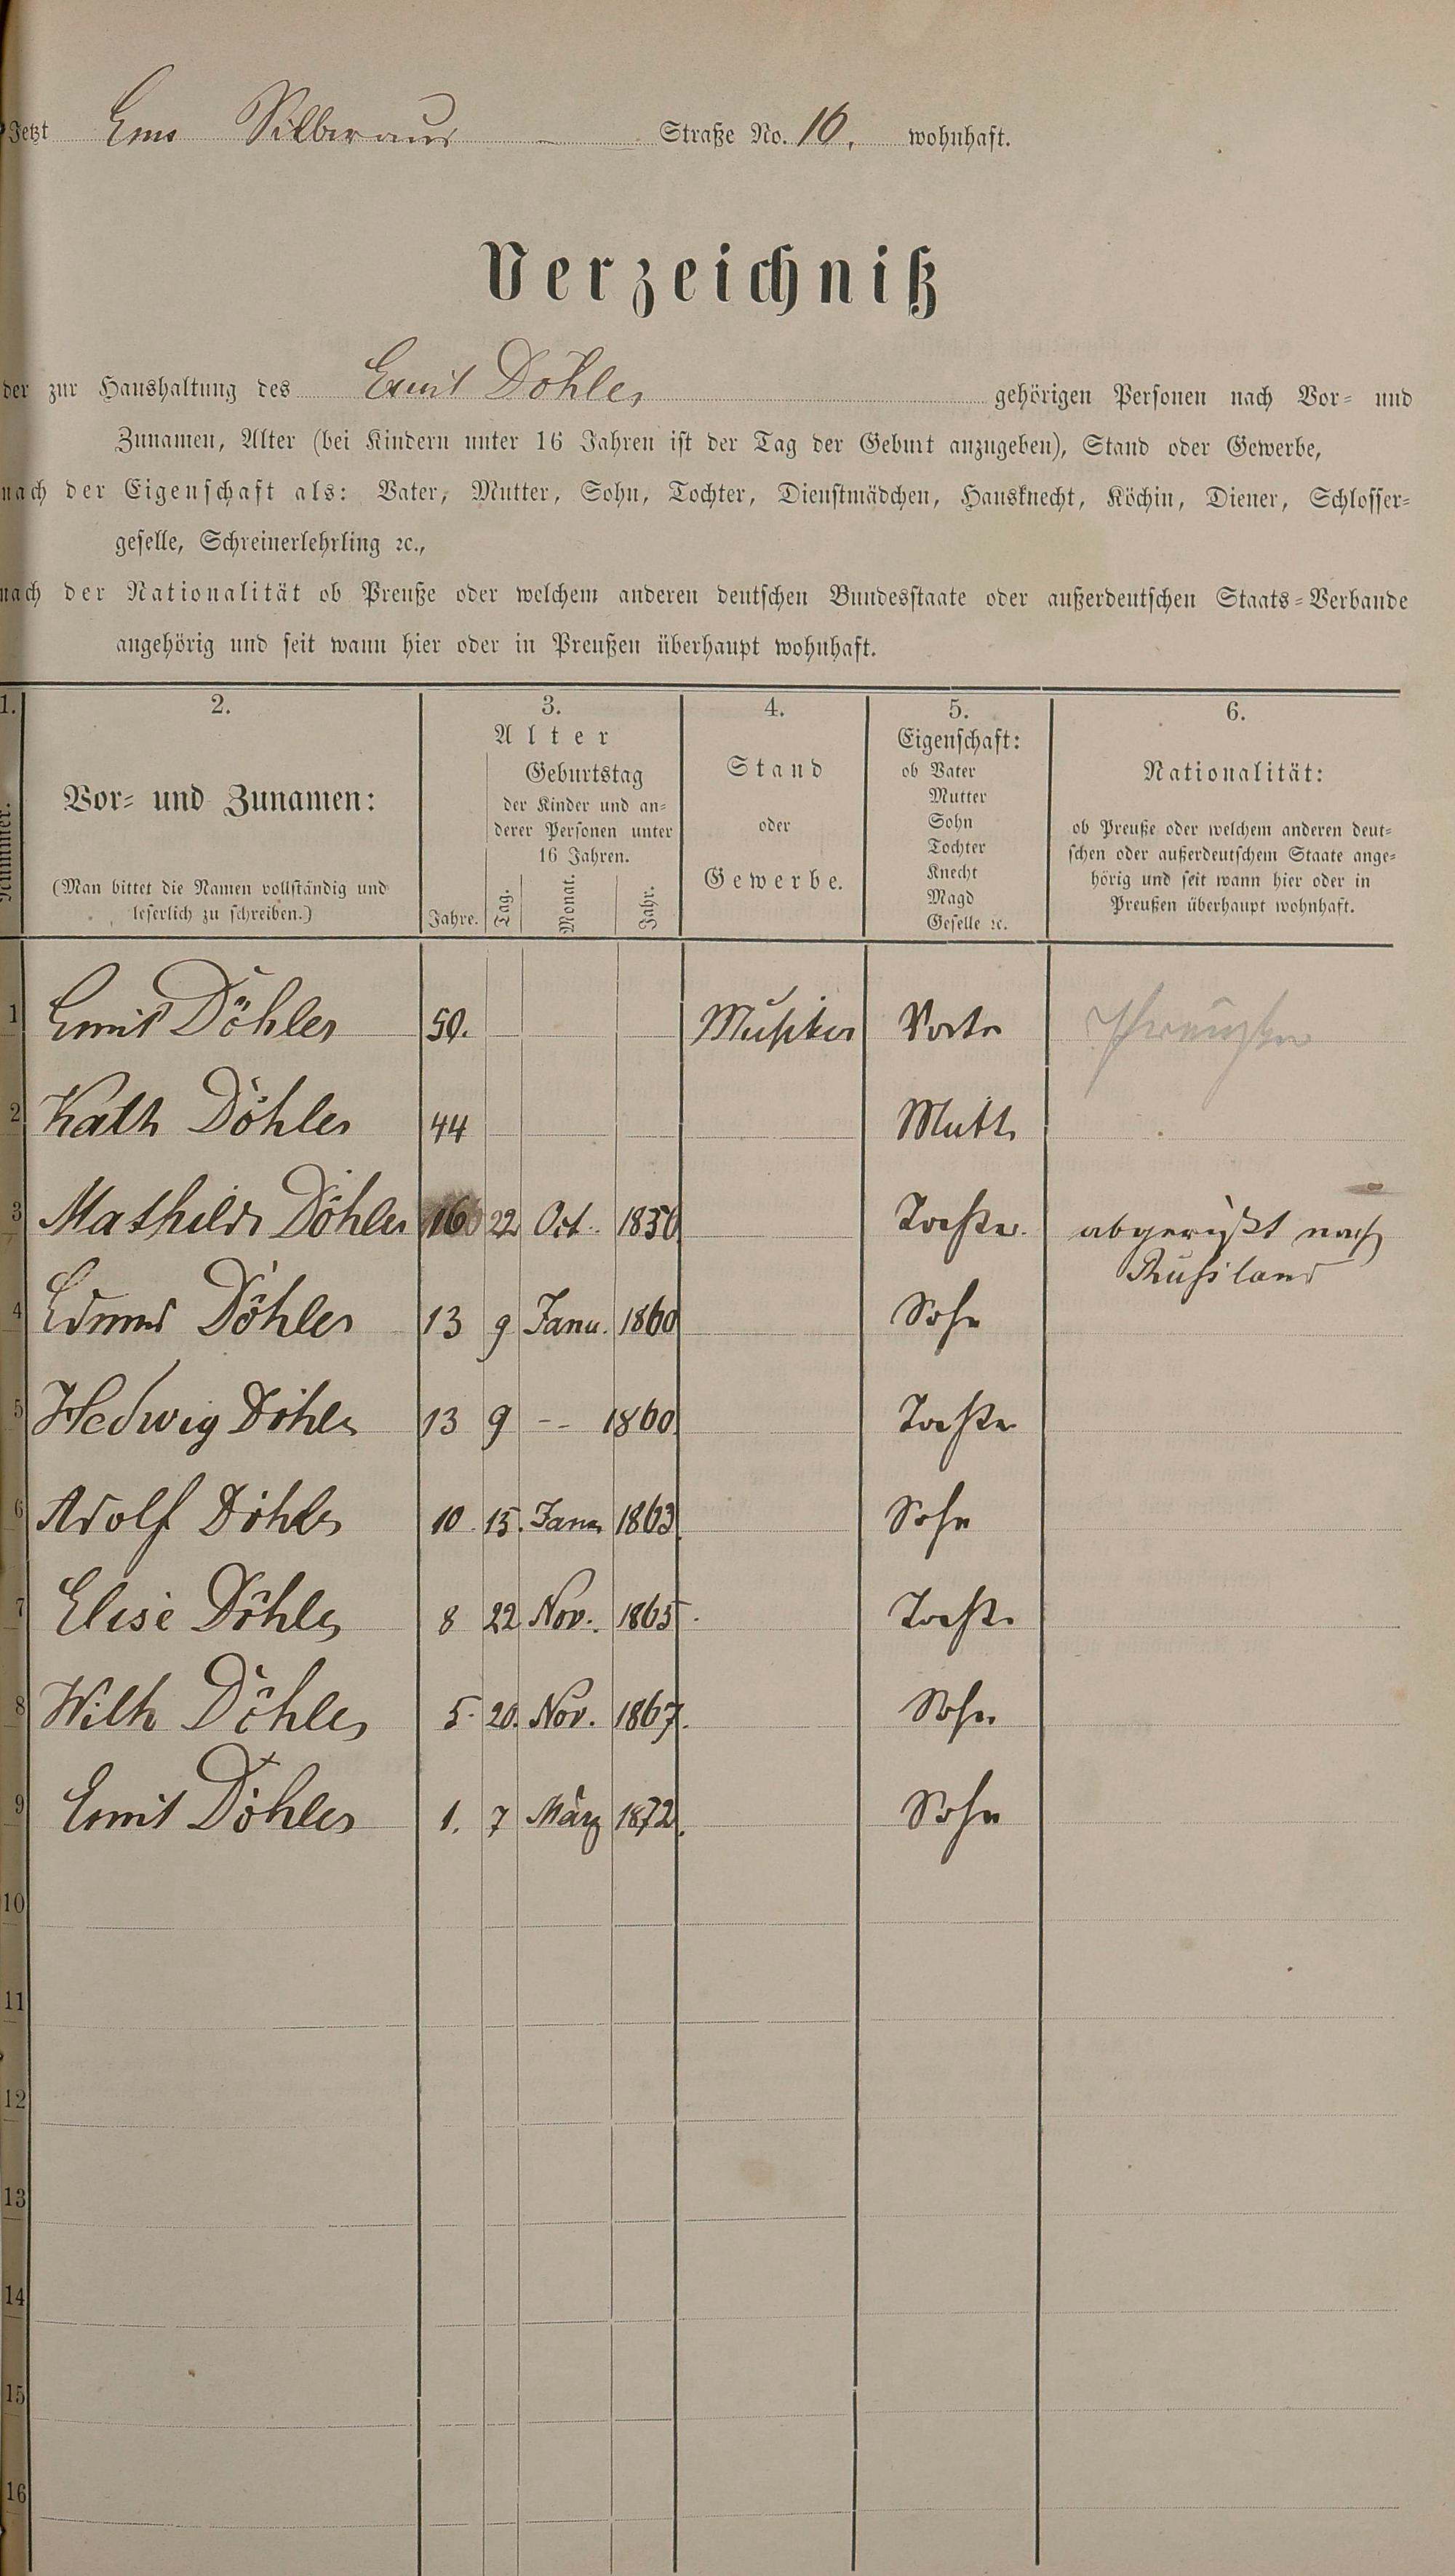 Jetzt Ems Silberau Straße No. 16. wohnhaft.
Verzeichniß
der zur Haushaltung des Emil Döhler gehörigen Personen nach Vor- und
Zunamen, Alter (bei Kindern unter 16 Jahren ist der Tag der Geburt anzugeben), Stand oder Gewerbe,
nach der Eigenschaft als: Vater, Mutter, Sohn, Tochter, Dienstmädchen, Hausknecht, Köchin, Diener, Schlosser-
geselle, Schreinerlehrling ꝛc.,
nach der Nationalität ob Preuße oder welchem anderen deutschen Bundesstaate oder außerdeutschen Staats-Verbande
angehörig und seit wann hier oder in Preußen überhaupt wohnhaft.
1.
Nummer.
2.
Vor- und Zunamen:
(Man bittet die Namen vollständig und
leserlich zu schreiben.)
3.
Alter
Jahre.
Geburtstag
der Kinder und an-
derer Personen unter
16 Jahren.
Tag. Monat. Jahr.
4.
Stand
oder
Gewerbe.
5.
Eigenschaft:
ob Vater
Mutter
Sohn
Tochter
Knecht
Magd
Geselle ꝛc.
6.
Nationalität:
ob Preuße oder welchem anderen deut-
schen oder außerdeutschem Staate ange-
hörig und seit wann hier oder in
Preußen überhaupt wohnhaft.
1 Emil Döhler 50. Musiker Vater Preußen
2 Kath Döhler 44 Mutt.
3 Mathilde Döhler 16 22 Oct. 1856 Tochter. abgereist nach
Russland
4 Edmund Döhler 13 9 Janu. 1860 Sohn
5 Hedwig Döhler 13 9 -- 1860. Tochter
6 Adolf Döhler 10. 15. Janu 1863. Sohn
7 Elise Döhler 8 22 Nov. 1865. Tocht.
8 Wilh Döhler 5. 20. Nov. 1867. Sohn
9 Emil Döhler 1. 7 März 1872. Sohn
10
11
12
13
14
15
16